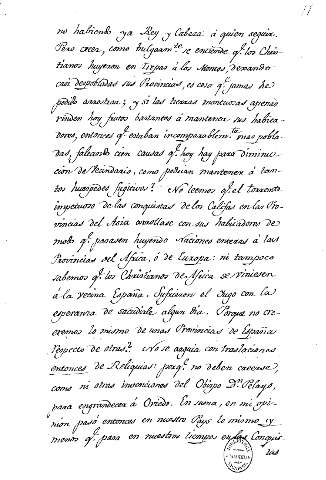 no habiendo ya Rey y Cabeza á quien seguir.
Pero creer, como bulgarmte se entiende qe los Chris-
tianos huyeron en Tropas á los Montes dexando
casi despobladas sus Provincias, es cosa qe jamas he
podido arrostrar; y si las tierras montuosas apenas
rinden hoy frutos bastantes á mantener sus habita-
dores, entonces qe estaban incomparablemte mas pobla-
das, faltando cien causas qe hoy hay para diminu-
cion de Vecindario, como podrian mantener á tan-
tos huespedes fugitivos? No leemos qe el torrente
impetuoso de las conquistas de los Califas en las Pro-
vincias del Asia arrollase con sus habitadores de
modo qe pasasen huyendo Naciones enteras á las
Provincias del Africa, ó de Europa: ni tampoco
sabemos qe los Christianos de Africa se viniesen
á la vecina España. Sufrieron el Yugo con la
esperanza de sacudirle algun dia. Porque no cre-
eremos lo mismo de unas Provincias de España
respecto de otras? No se arguia con traslaciones
entonces de Reliquias: porqe no deben creerse,
como ni otras invenciones del Obispo Dn Pelayo,
para engrandecer á Oviedo. En suma, en mi opi-
nion pasó entonces en nuestro Pays lo mismo, y
menos qe pasa en nuestros tiempos en las Conquis-
tas